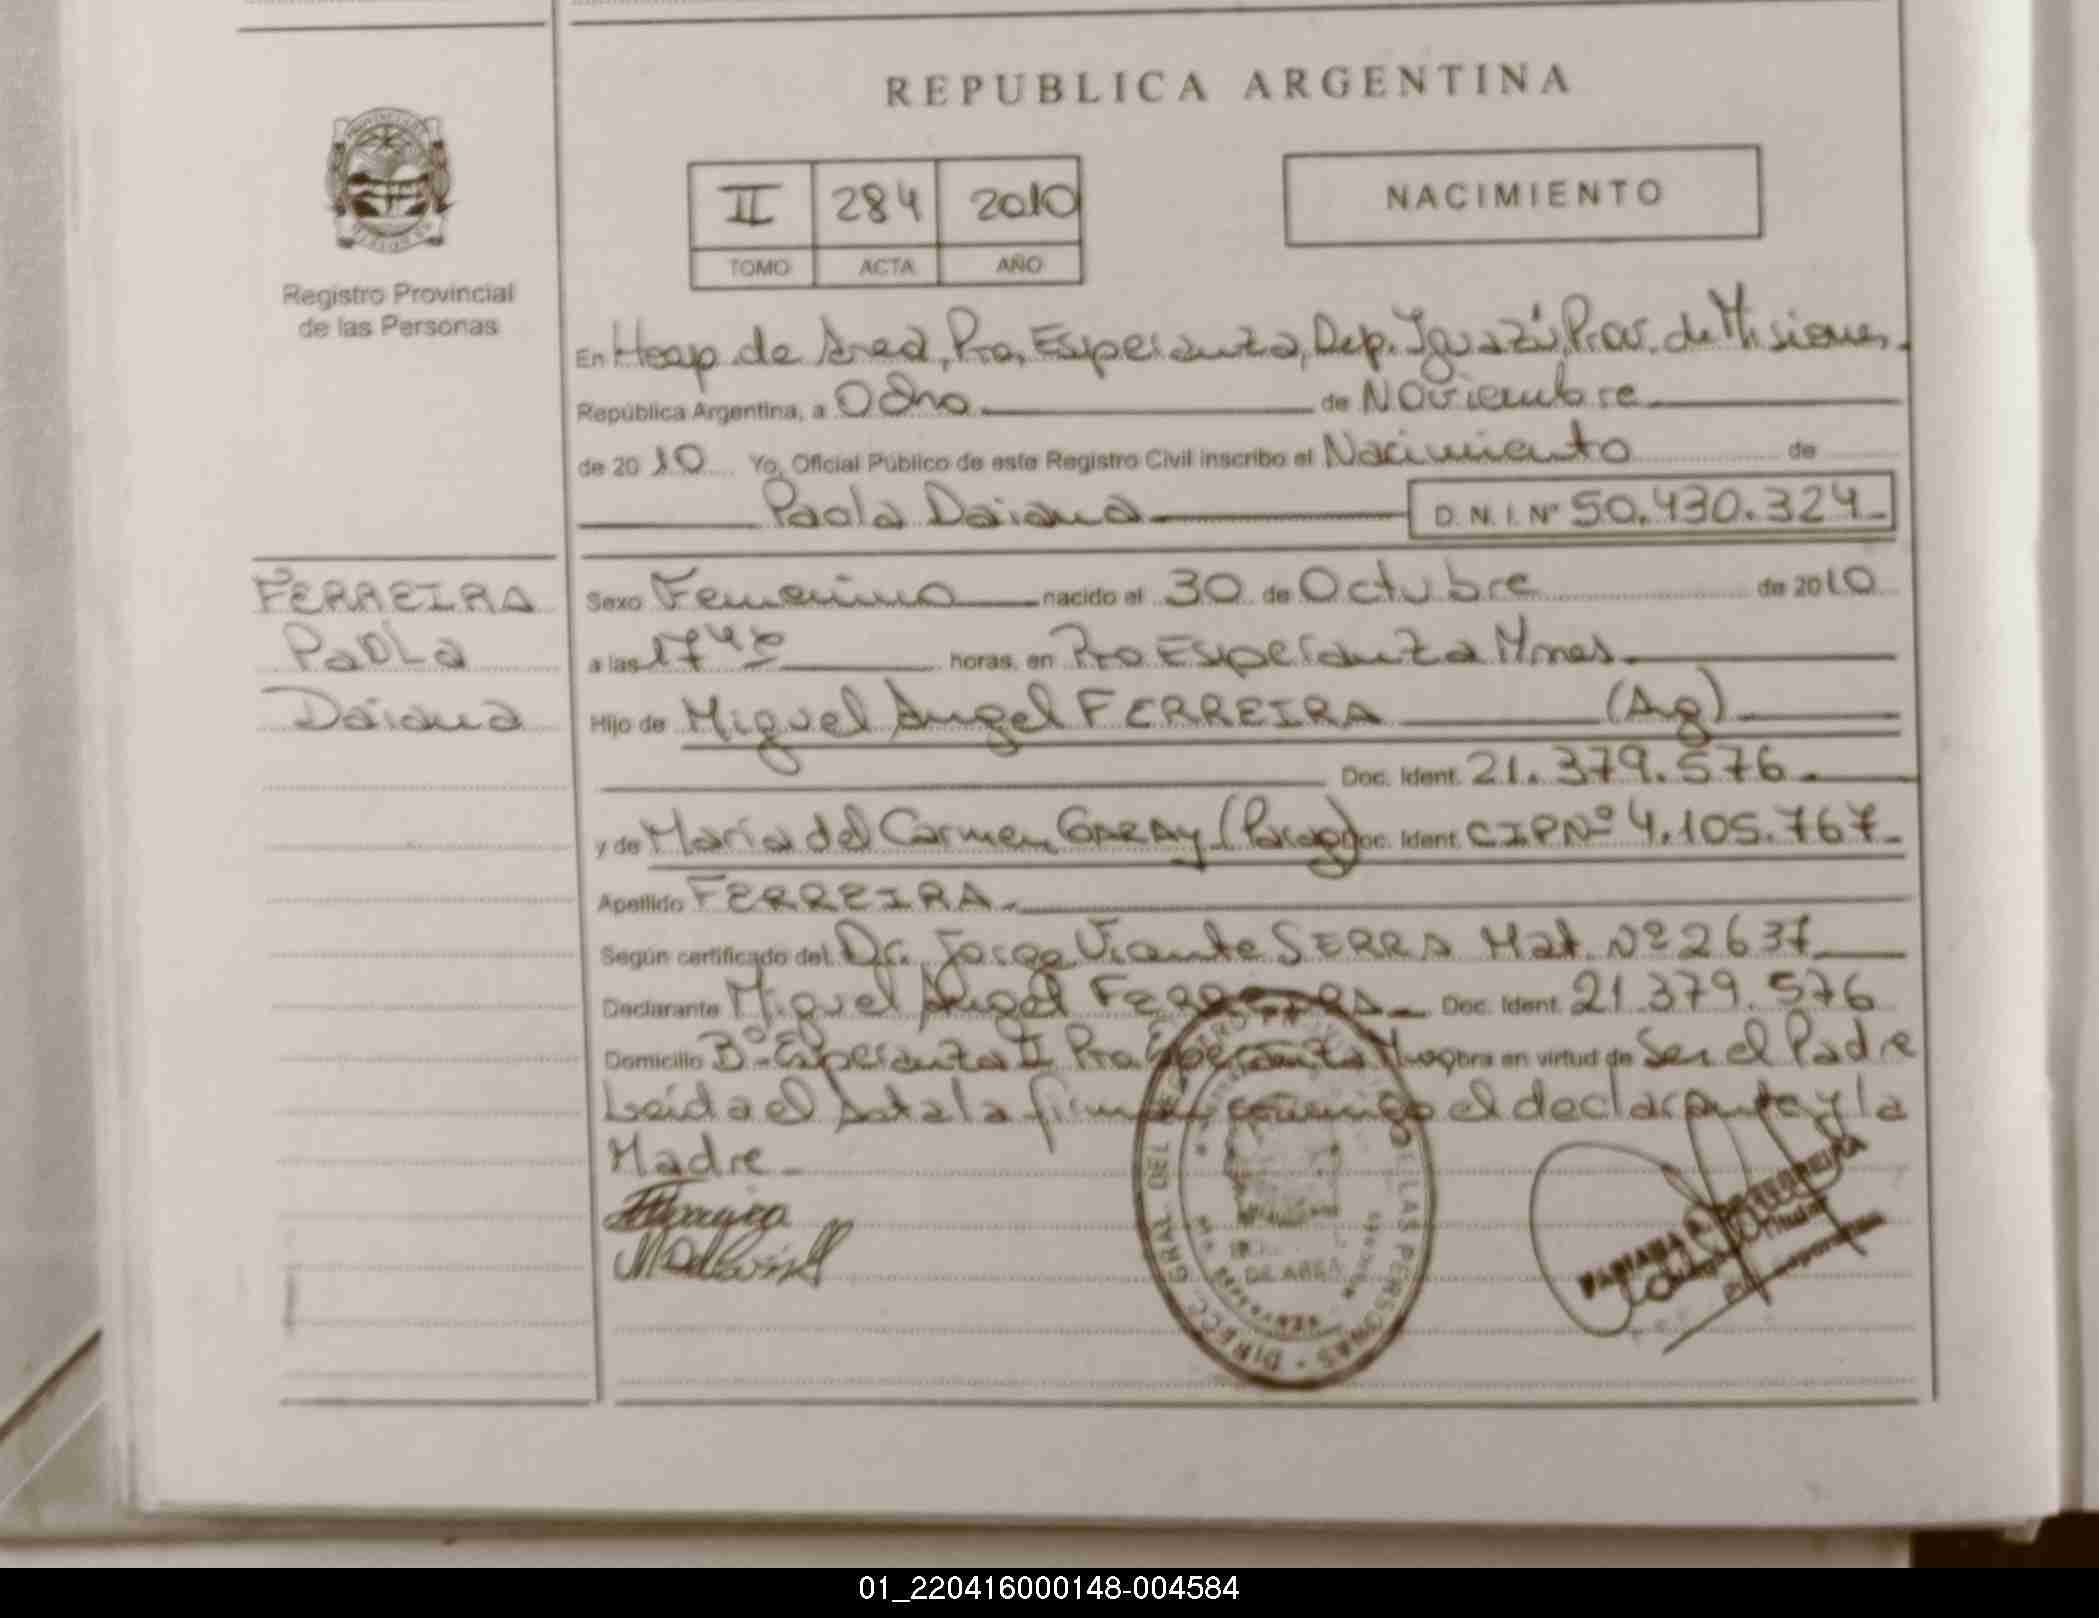 REPUBLICA ARGENTINA
II 284 2010
TOMO ACTA AÑO
NACIMIENTO
Registro Provincial
de las Personas
En Hosp de Area, Pto, Esperanza, Dep. Iguazú, Prov. de Misiones.
República Argentina, a Ocho de Noviembre
de 2010 Yo, Oficial Público de este Registro Civil inscribo el Nacimiento de
Paola Daiana D. N. I. Nº 50.430.324
FERREIRA
Paola
Daiana
Sexo Femenino nacido el 30 de Octubre de 2010
a las 17 horas, en Pto Esperanza Mnes
Hijo de Miguel Angel FERREIRA (Ag)
Doc. Ident. 21.379.576
y de Maria del Carmen GARAY (Parag) Doc. Ident. CIP Nº 4.105.767
Apellido FERREIRA
Según certificado del Dr. Jorge Vicente SERRA Mat. Nº 2637
Declarante Miguel Angel FERREIRA Doc. Ident. 21.379.576
Domicilio Bº Esperanza II Pto Esperanza obra en virtud de Ser el Padre
Leida el Acta la firman conmigo el declarante y la
Madre
DIRECC. GRAL. DEL REGISTRO PROVINCIAL DE LAS PERSONAS
DE AREA
01_220416000148-004584